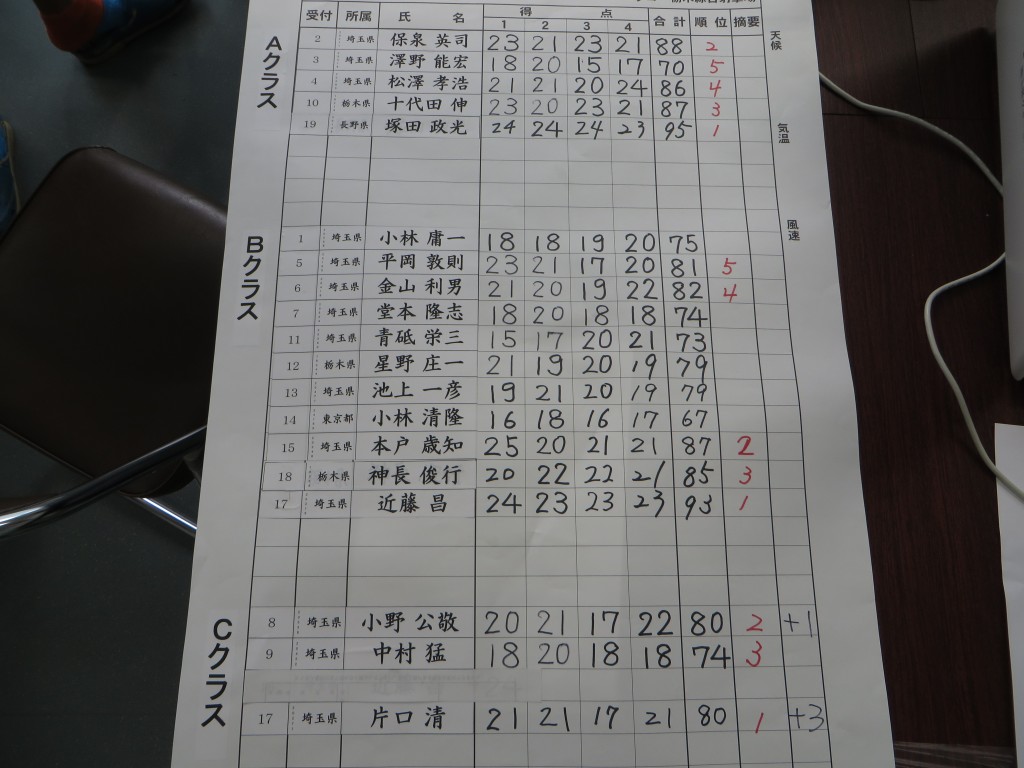 受付 所属 氏 名 得 点 合計 順位 摘要
1 2 3 4
天候
Aクラス
2 埼玉県 保泉 英司 23 21 23 21 88 2
3 埼玉県 澤野 能宏 18 20 15 17 70 5
4 埼玉県 松澤 孝浩 21 21 20 24 86 4
10 栃木県 十代田 伸 23 20 23 21 87 3
19 長野県 塚田 政光 24 24 24 23 95 1
気温
風速
Bクラス
1 埼玉県 小林 庸一 18 18 19 20 75
5 埼玉県 平岡 敦則 23 21 17 20 81 5
6 埼玉県 金山 利男 21 20 19 22 82 4
7 埼玉県 堂本 隆志 18 20 18 18 74
11 埼玉県 青砥 栄三 15 17 20 21 73
12 栃木県 星野 庄一 21 19 20 19 79
13 埼玉県 池上 一彦 19 21 20 19 79
14 東京都 小林 清隆 16 18 16 17 67
15 埼玉県 本戸 歳知 25 20 21 21 87 2
18 栃木県 神長 俊行 20 22 22 21 85 3
17 埼玉県 近藤 昌 24 23 23 23 93 1
Cクラス
8 埼玉県 小野 公敬 20 21 17 22 80 2 +1
9 埼玉県 中村 猛 18 20 18 18 74 3
17 埼玉県 片口 清 21 21 17 21 80 1 +3